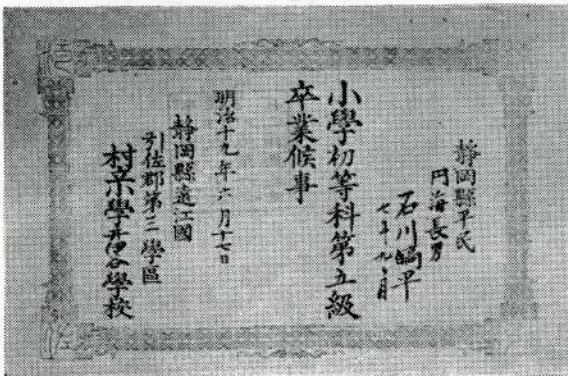 静岡縣平民
円海長男
石川平
七年九ヶ月
小學初等科第五級
卒業候事
明治十九年六月十七日
静岡縣遠江國
引佐郡第三學區
村立小學谷學校